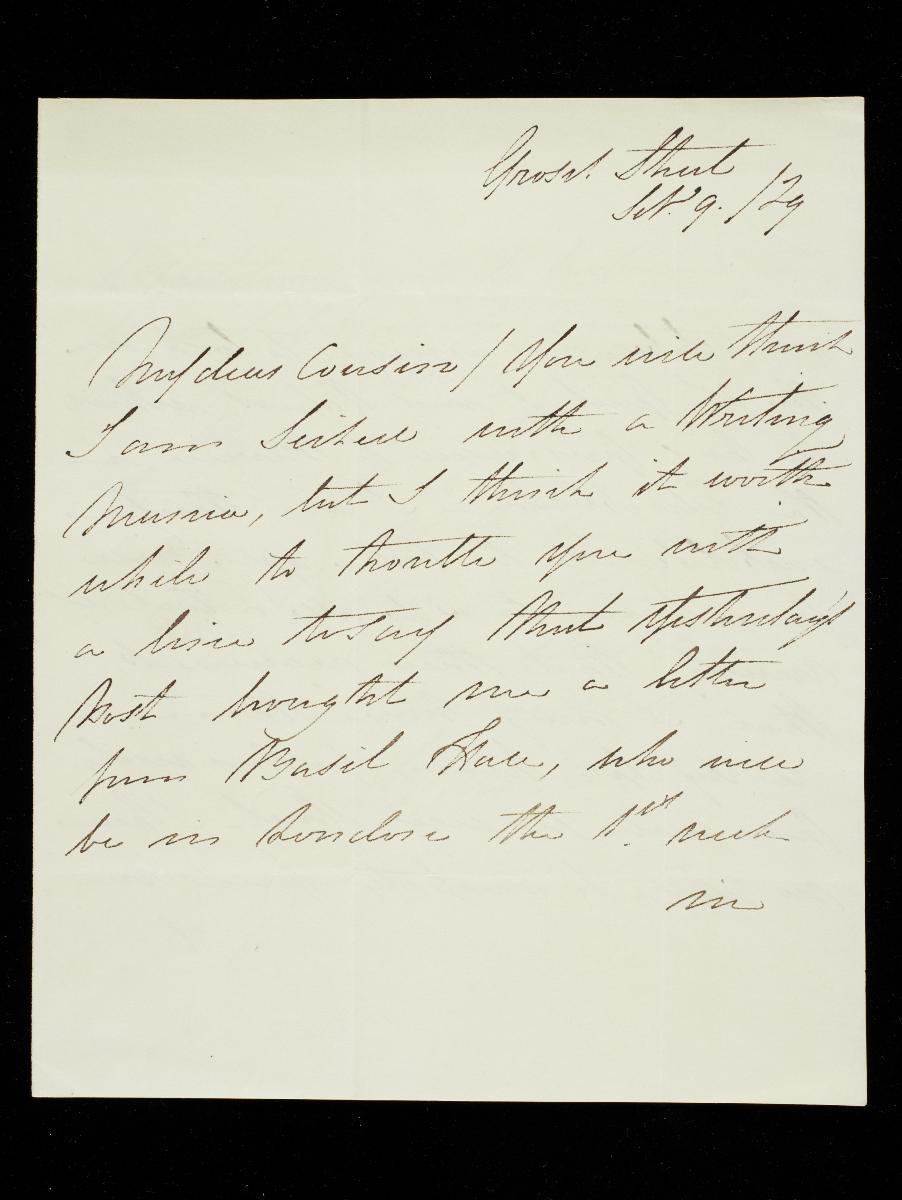 Grosr. Street
Set. 9. /29
My dear Cousin / You will think
I am seized with a Writing
Mania, but I think it worth
while to trouble you with
a line to say that yesterday's
Post brought me a letter
from Basil Hall, who will
be in London the 1st. week
in